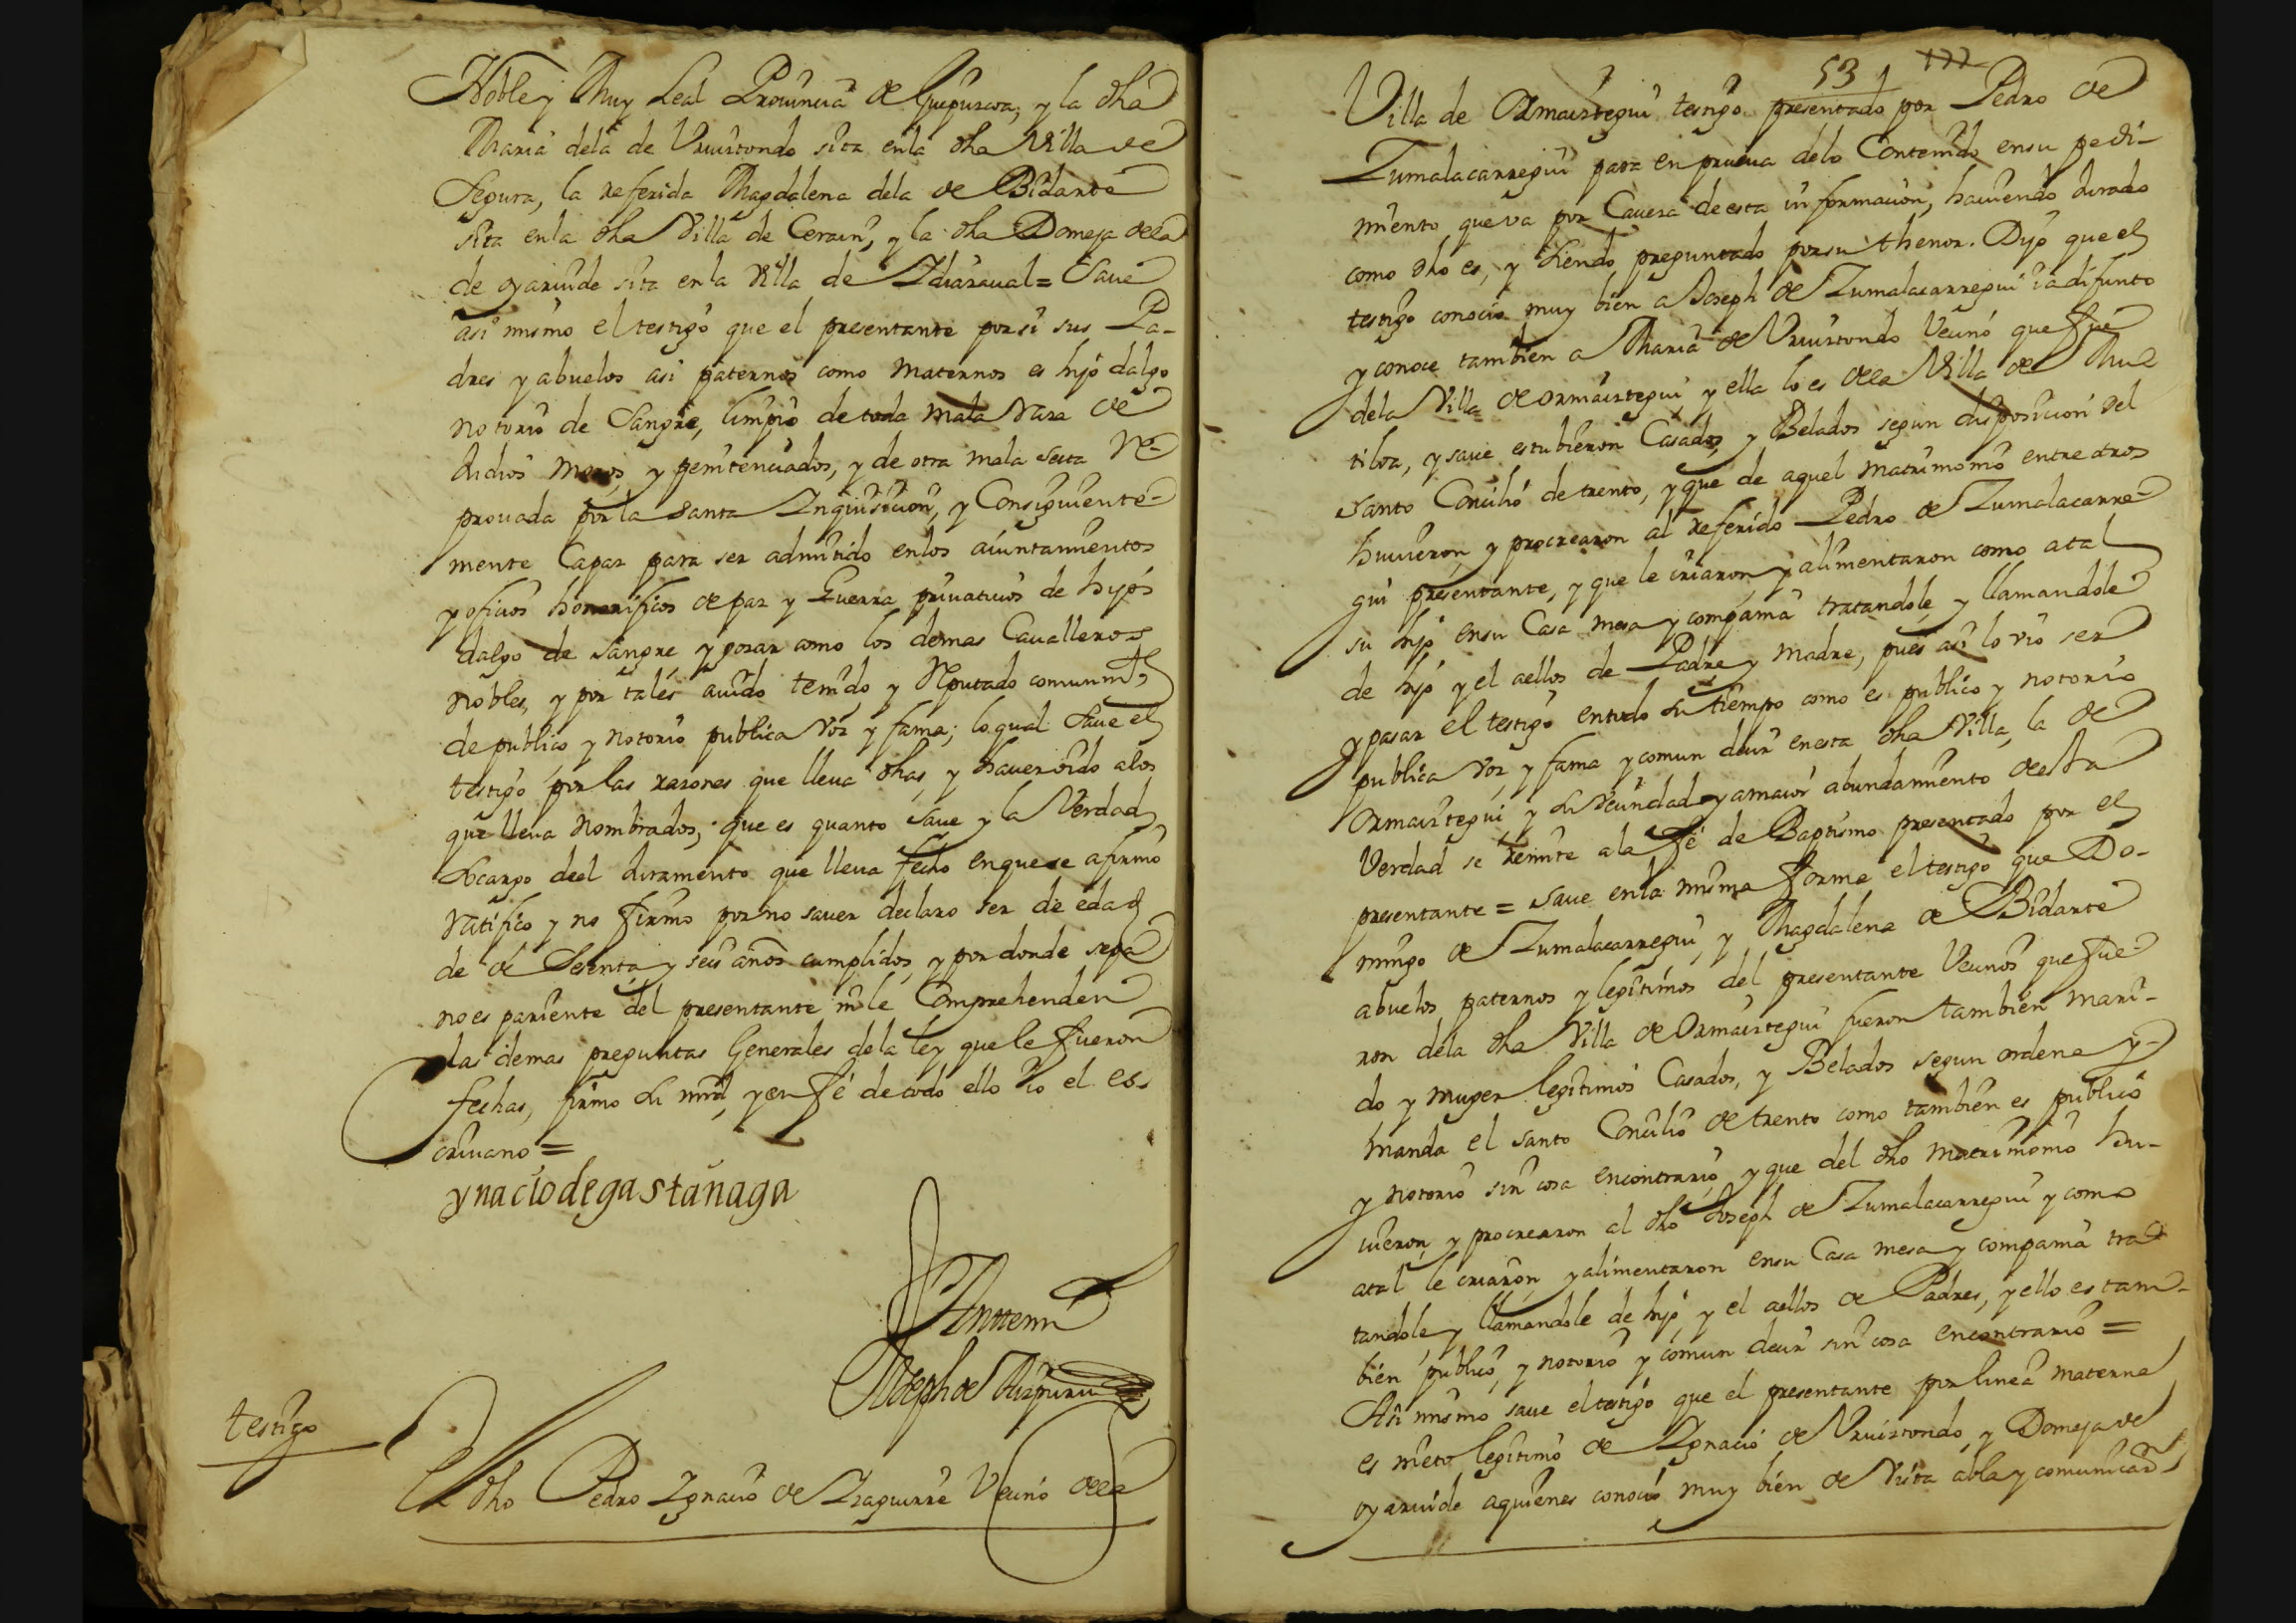 Noble y Muy Leal Prouincia de Guipuzcoa, y la dha
Maria dela de Vruiztondo sita enla dha Villa de
Segura, la referida Magdalena dela de Bidarte
sita enla dha Villa de Cerain, y la dha Domeja dela
de oyaruide sita en la Villa de Ydiazaual = Saue
asi mismo el testigo que el presentante por si sus Pa-
dres y abuelos asi paternos como maternos es hijo dalgo
notorio de Sangre, limpio de toda mala raza de
Judios moros, y penitenciados, y de otra mala secta Re-
prouada por la santa Ynquisicion, y Consiguiente-
mente Capaz para ser admitido enlos aiuntamientos
y oficios honorificos de paz y Guerra priuatiuos de hijos
dalgo de sangre y gozar como los demas Caualleros
nobles, y por tales auido tenido y Reputado comunmte
de publico y notorio publica voz y fama; lo qual Saue el
testigo por las razones que lleua dhas, y hauer oido alos
que lleua nombrados, que es quanto saue y la Verdad
socargo deel Juramento que lleua fecho enquese afirmo
ratifico y no firmo por no sauer declaro ser de edad
de de Setenta y seis años cumplidos, y por donde sepa
no es pariente del presentante ni le Comprehenden
las demas preguntas Generales dela ley que le fueron
fechas, firmo su mrd, y en fé de todo ello io el es-
criuano =
ynacio de gastañaga
Anttemi
Joseph de Aizpuru
testigo
El dho Pedro Ygnacio de Yzaguirre Vecino dela
53
177
Villa de Ormaiztegui testigo presentado por Pedro de
Zumalacarregui para en prueua delo Contenido ensu pedi-
miento que va por Caueza de esta informacion, hauiendo Jurado
como dho es, y Siendo preguntado por su thenor. Dijo que el
testigo conocio muy bien a Joseph de Zumalacarregui ia difunto
y conoce tambien a Maria de Vruiztondo Vecino que fue
dela Villa de Ormaiztegui y ella lo es dela Villa de Mu
tiloa, y saue estubieron Casados, y Belados segun disposicion del
Santo Concilio de trento, y que de aquel matrimonio entre otros
huuieron, y procrearon al referido Pedro de Zumalacarre-
gui presentante, y que le criaron, y alimentaron como atal
su hijo ensu Casa mesa y compania tratandole, y llamandole
de hijo y el aellos de Padre y madre, pues asi lo vio ser
y pasar el testigo entodo su tiempo como es publico y notorio
publica voz, y fama y comun decir en esta dha Villa, la de
Ormaiztegui y su Vecindad y amaior abundamiento desta
Verdad se remite ala Fé de Baptismo presentado por el
presentante = saue enla misma forma el testigo que Do-
mingo de Zumalacarregui, y Magdalena de Bidarte
abuelos paternos y legitimos del presentante Vecinos que fue-
ron dela dha Villa de Ormaiztegui fueron tambien mari-
do y muger legitimos Casados, y Belados segun ordena y
manda el santo Concilio de trento como tambien es publico
y notorio sin cosa encontrario, y que del dho matrimonio hu-
uieron, y procrearon al dho Joseph de Zumalacarregui y como
atal le criaron, y alimentaron ensu Casa mesa y compania tra-
tandole, y llamandole de hijo, y el aellos de Padres, y ello es tam-
bien publico, y notorio y comun decir sin cosa encontrario =
Asi mismo saue el testigo que el presentante por linea materna
es nieto legitimo de Ygnacio de Vruiztondo, y Domeja de
oyaruide aquienes conocio muy bien de Vista abla y comunicaon